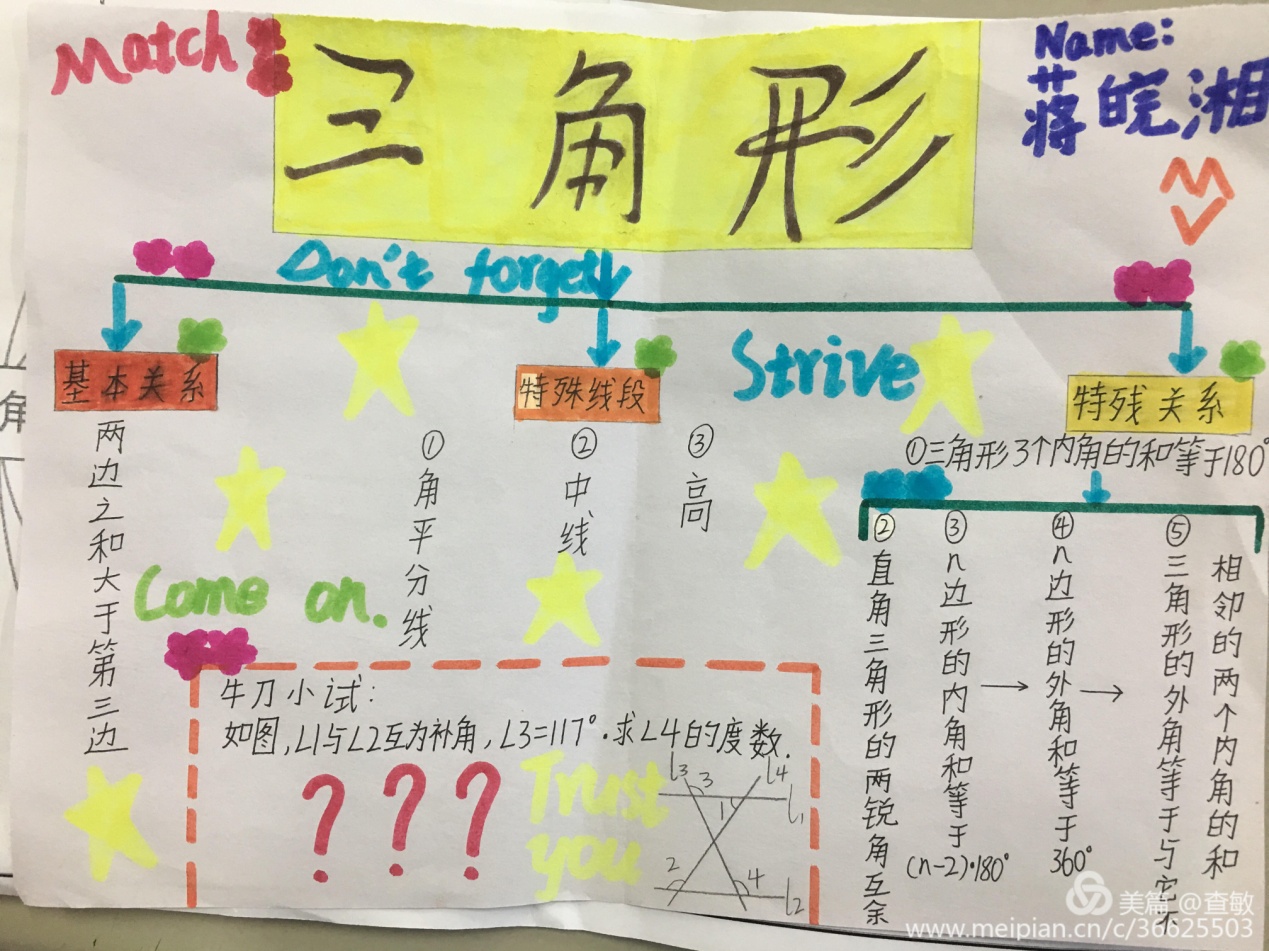 Match
三角形
Name:
蒋皖湘
Don't forget
Strive
基本关系
特殊线段
特残关系
两边之和大于第三边
①角平分线
②中线
③高
①三角形3个内角的和等于180°
②直角三角形的两锐角互余
③n边形的内角和等于(n-2)·180°
④n边形的外角和等于360°
⑤三角形的外角等于与它不
相邻的两个内角的和
Come on.
牛刀小试:
如图,∠1与∠2互为补角,∠3=117°.求∠4的度数.
???
Trust
you
l3
3
l4
1
l1
2
4
l2
美篇 @查敏
www.meipian.cn/c/36625503